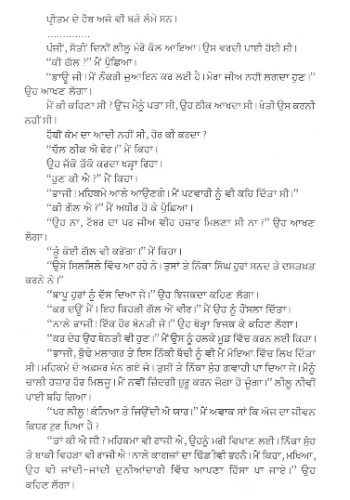 ਪ੍ਰੀਤਮ ਦੇ ਹੱਥ ਅਜੇ ਵੀ ਬੜੇ ਲੰਮੇ ਸਨ।
..............
ਪੰਜੀਂ, ਸੱਤੀਂ ਦਿਨੀਂ ਲੀਲੂ ਮੇਰੇ ਕੋਲ ਆਇਆ। ਉਸ ਵਰਦੀ ਪਾਈ ਹੋਈ ਸੀ।
“ਕੀ ਗੱਲ?” ਮੈਂ ਪੁੱਛਿਆ।
“ਭਾਊ ਜੀ! ਮੈਂ ਨੌਕਰੀ ਜੁਆਇਨ ਕਰ ਲਈ ਹੈ। ਮੇਰਾ ਜੀਅ ਨਹੀਂ ਲਗਦਾ ਹੁਣ।”
ਉਹ ਆਖਣ ਲੱਗਾ।
ਮੈਂ ਕੀ ਕਹਿਣਾ ਸੀ? ਉਂਜ ਮੈਨੂੰ ਪਤਾ ਸੀ, ਉਹ ਠੀਕ ਆਖਦਾ ਸੀ। ਖੇਤੀ ਉਸ ਕਰਨੀ
ਨਹੀਂ ਸੀ।
ਹੱਥੀਂ ਕੰਮ ਦਾ ਆਦੀ ਨਹੀਂ ਸੀ, ਹੋਰ ਕੀ ਕਰਦਾ?
“ਚੱਲ ਠੀਕ ਐ ਫੇਰ।” ਮੈਂ ਕਿਹਾ।
ਉਹ ਜੱਕੋ ਤੱਕੋ ਕਰਦਾ ਖੜ੍ਹਾ ਰਿਹਾ।
“ਹੁਣ ਕੀ ਐ?” ਮੈਂ ਕਿਹਾ।
“ਭਾਜੀ! ਮਹਿਕਮੇ ਆਲੇ ਆਉਣਗੇ। ਮੈਂ ਪਟਵਾਰੀ ਨੂੰ ਵੀ ਕਹਿ ਦਿੱਤਾ ਸੀ।”
“ਕੀ ਗੱਲ ਐ?” ਮੈਂ ਅਧੀਰ ਹੋ ਕੇ ਪੁੱਛਿਆ।
“ਉਹ ਨਾ, ਟੱਬਰ ਦਾ ਪਰ ਜੀਅ ਵੀਹ ਹਜ਼ਾਰ ਮਿਲਣਾ ਸੀ ਨਾ?” ਉਹ ਆਖਣ
ਲੱਗਾ।
“ਤੂੰ ਕੋਈ ਗੱਲ ਵੀ ਕਰੇਂਗਾ।” ਮੈਂ ਕਿਹਾ।
“ਉਸੇ ਸਿਲਸਿਲੇ ਵਿੱਚ ਆ ਰਹੇ ਨੇ। ਤੁਸਾਂ ਤੇ ਨਿੱਕਾ ਸਿੰਘ ਹੁਰਾਂ ਸਨਦ ਤੇ ਦਸਤਖ਼ਤ
ਕਰਨੇ ਨੇ।”
“ਬਾਪੂ ਹੁਰਾਂ ਨੂੰ ਦੱਸ ਦਿਆ ਜੇ।” ਉਹ ਝਿਜਕਦਾ ਕਹਿਣ ਲੱਗਾ।
“ਕਰ ਦਊਂ ਮੈਂ। ਇਹ ਕਿਹੜੀ ਗੱਲ ਐ ਵੀਰ।” ਮੈਂ ਉਹ ਨੂੰ ਹੌਂਸਲਾ ਦਿੱਤਾ।
“ਨਾਲੇ ਭਾਜੀ! ਇੱਕ ਹੋਰ ਬੇਨਤੀ ਜੇ।” ਉਹ ਥੋੜ੍ਹਾ ਝਿਜਕ ਕੇ ਕਹਿਣ ਲੱਗਾ।
“ਕਰ ਦੇਹ ਉਹ ਬੇਨਤੀ ਵੀ ਹੁਣ।” ਮੈਂ ਉਸ ਨੂੰ ਹਲਕੇ ਮੂਡ ਵਿੱਚ ਕਰਨ ਲਈ ਕਿਹਾ।
“ਭਾਜੀ, ਬੁੱਢੇ ਮਲਾਗਰ ਤੇ ਇਸ ਨਿੱਕੀ ਬੱਚੀ ਨੂੰ ਵੀ ਮੈਂ ਮੋਇਆਂ ਵਿੱਚ ਲਿਖ ਦਿੱਤਾ
ਸੀ। ਮਹਿਕਮੇ ਦੇ ਅਫ਼ਸਰ ਮੰਨ ਗਏ ਜੇ। ਤੁਸੀਂ ਤੇ ਨਿੱਕਾ ਸੁੰਹ ਗਵਾਹੀ ਪਾ ਦਿਆ ਜੇ। ਮੈਨੂੰ
ਚਾਲੀ ਹਜ਼ਾਰ ਹੋਰ ਮਿਲਜੂ। ਮੈਂ ਨਵੀਂ ਜ਼ਿੰਦਗੀ ਸ਼ੁਰੂ ਕਰਨ ਜੋਗਾ ਹੋ ਜੂੰਗਾ।” ਲੀਲੂ ਨੀਵੀਂ
ਪਾਈ ਬਹਿ ਗਿਆ।
“ਪਰ ਲੀਲੂ! ਕੰਨਿਆ ਤੇ ਜਿਉਂਦੀ ਐ ਯਾਰ।” ਮੈਂ ਅਵਾਕ ਸਾਂ ਕਿ ਅੱਜ ਦਾ ਜੀਵਨ
ਕਿਧਰ ਤੁਰ ਪਿਆ ਹੈ?
“ਤਾਂ ਕੀ ਐ ਜੀ? ਮਹਿਕਮਾ ਵੀ ਰਾਜੀ ਐ, ਉਹਨੂੰ ਮਰੀ ਵਿਖਾਣ ਲਈ। ਨਿੱਕਾ ਸੁੰਹ
ਤੇ ਬਾਕੀ ਵਿਹੜਾ ਵੀ ਰਾਜੀ ਐ। ਨਾਲੇ ਕਾਗਜ਼ਾਂ ਦਾ ਢਿੱਡ ਈ ਭਰਨੈ। ਮੈਂ ਕਿਹਾ, ਮਖਿਆ,
ਉਹ ਵੀ ਜਾਂਦੀ-ਜਾਂਦੀ ਦੁਨੀਆਂਦਾਰੀ ਵਿੱਚ ਆਪਣਾ ਹਿੱਸਾ ਪਾ ਜਾਏ।” ਉਹ
ਕਹਿਣ ਲੱਗਾ।